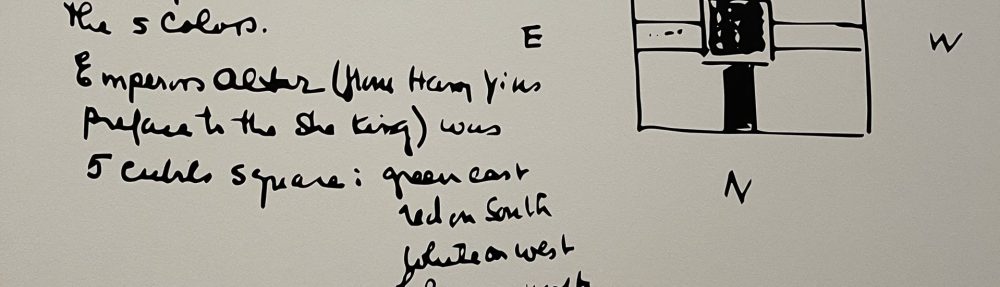 The 5 Colors.
Emperors Altar (
Preface to the Shu King) was
5 cubits square: green east
red on South
white on west
E
W
N